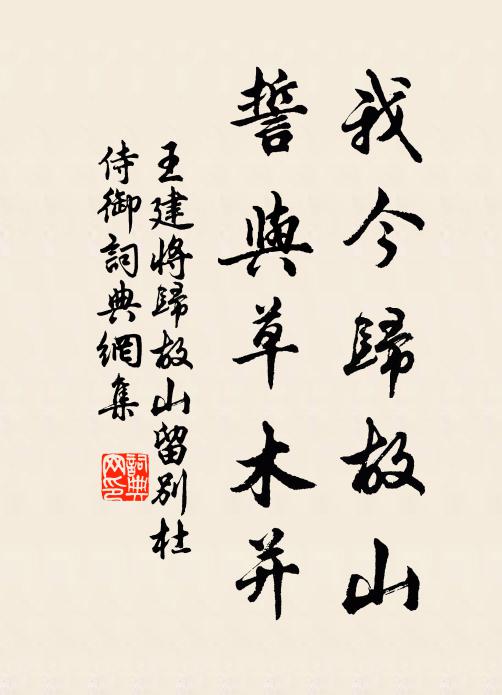 我今歸故山
誓與草木并
王建將歸故山留別杜
侍御詞典網集
詞典
网印